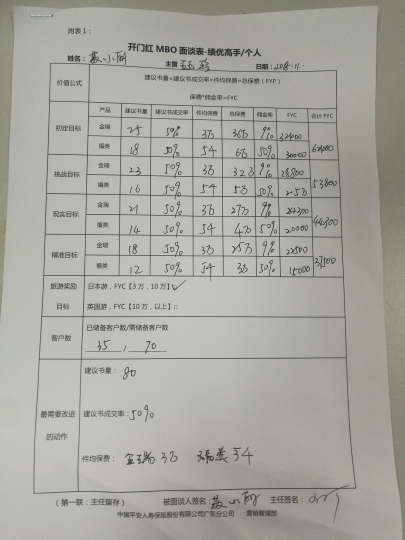 附表1：
开门红 MBO 面谈表-绩优高手/个人
姓名： 小丽 主管 日期：2018.11.
价值公式 建议书量×建议书成交率×件均保费=总保费（FYP）
保费*佣金率=FYC
产品 建议书量 建议书成交率 件均保费 总保费 佣金率 FYC 合计FYC
初定目标 金瑞 25 50% 3万 36万 9% 32400 62400
福类 18 50% 5千 6万 50% 30000
挑战目标 金瑞 23 50% 3万 32万 9% 28800 53800
福类 16 50% 5千 5万 50% 2.5万
现实目标 金瑞 21 50% 3万 27万 9% 24300 44300
福类 14 50% 5千 4万 50% 20000
精准目标 金瑞 18 50% 3万 25万 9% 22500 37500
福类 12 50% 5千 3万 50% 15000
旅游奖励 日本游，FYC【3万，10万】✓
目标 英国游，FYC【10万，以上】□
客户数 已储备客户数/需储备客户数
35 ， 70
建议书量： 80
最需要改进的动作 建议书成交率： 50%
件均保费： 金瑞3万 福类5千
（第一联：主任留存） 被面谈人签名： 小丽 主任签名：
中国平安人寿保险股份有限公司广东分公司 营销管理部